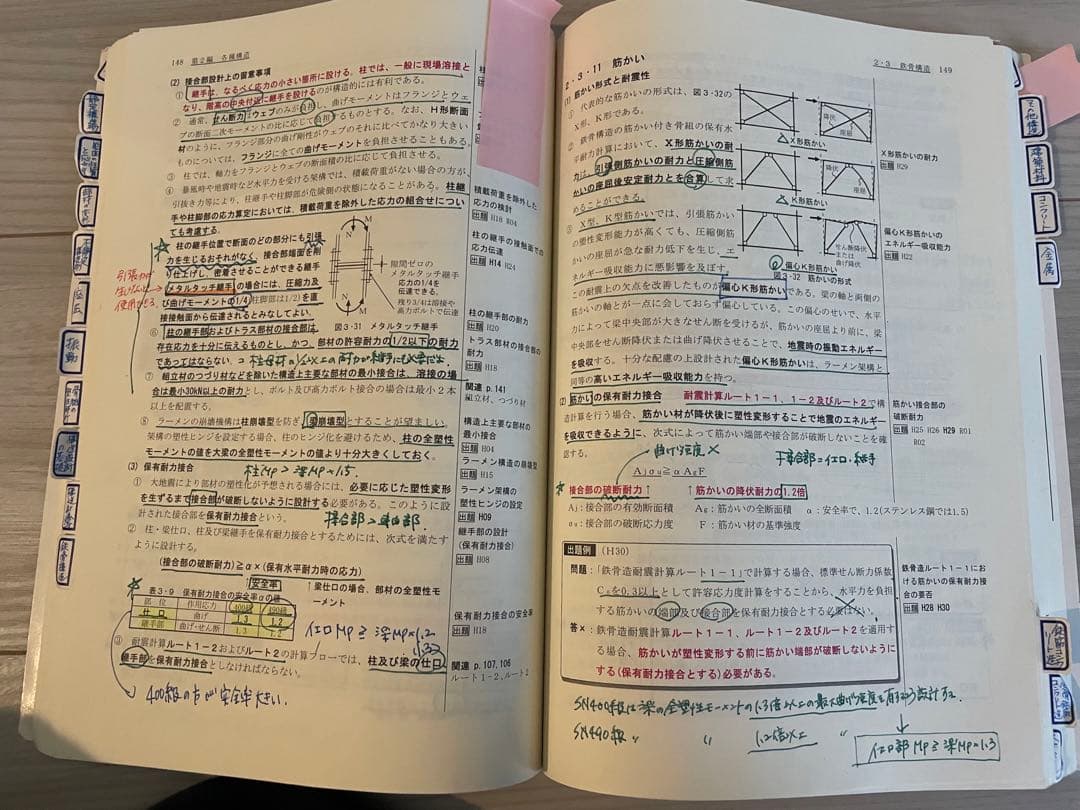 148 第2編 各種構造
(2) 接合部設計上の留意事項
① 継手は、なるべく応力の小さい箇所に設ける。柱では、一般に現場溶接と
なり、階高の中央付近に継手を設けるのが構造的には有利である。
② 通常、せん断力はウェブのみが負担し、曲げモーメントはフランジとウェ
ブの断面二次モーメントの比に応じて負担するものとする。なお、H形断面
材のように、フランジ部分の曲げ剛性がウェブのそれに比べてかなり大きい
ものについては、フランジに全ての曲げモーメントを負担させることもある。
③ 柱では、軸力をフランジとウェブの断面積の比に応じて負担させる。
④ 暴風時や地震時など水平力を受ける架構では、積載荷重がない場合の方が、
引抜き力等により、柱継手や柱脚部が危険側の状態になることがある。柱継
手や柱脚部の応力算定においては、積載荷重を除外した応力の組合せについ
ても考慮する。
積載荷重を除外した
応力の検討
出題 H18 R04
柱の継手位置で断面のどの部分にも引張
力を生じるおそれがなく、接合部端面を削
り仕上げし、密着させることができる継手
(メタルタッチ継手)の場合には、圧縮力及
び曲げモーメントの1/4(柱脚部は1/2)を直
接接触面から伝達されるとみなしてよい。
引張力が
使用できる。
M
N
隙間ゼロの
メタルタッチ継手
応力の1/4を
伝達できる。
残り3/4は溶接や
高力ボルトで伝達
N
M
図3・31 メタルタッチ継手
柱の継手の接触面での
応力伝達
出題 H14 H24
⑥ 柱の継手部およびトラス部材の接合部は、
存在応力を十分に伝えるものとし、かつ、部材の許容耐力の1/2以下の耐力
であってはならない。
柱継手部の耐力
出題 H20
トラス部材の接合部の
耐力
出題 H18
⑦ 組立材のつづり材などを除いた構造上主要な部材の最小接合は、溶接の場
合は最小30kN以上の耐力とし、ボルト及び高力ボルト接合の場合は最小2本
以上を配置する。
関連 p.141
組立材、つづり材
構造上主要な部材の
最小接合
出題 H04
⑧ ラーメンの崩壊機構は柱崩壊型を防ぎ、梁崩壊型とすることが望ましい。
架構の塑性ヒンジを設定する場合、柱のヒンジ化を避けるため、柱の全塑性
モーメントの値を大梁の全塑性モーメントの値より十分大きくしておく。
柱Mp > 梁Mp×1.5
ラーメン構造の崩壊型
出題 H15
ラーメン架構の
塑性ヒンジの設定
出題 H09
(3) 保有耐力接合
① 大地震により部材の塑性化が予想される場合には、必要に応じた塑性変形
を生ずるまで接合部が破断しないように設計する必要がある。このように設
計された接合部を保有耐力接合という。
② 柱・梁仕口、柱及び梁継手を保有耐力接合とするためには、次式を満たす
ように設計する。
継手部の設計
(保有耐力接合)
出題 H08
(接合部の破断耐力)≧α×(保有水平耐力時の応力)
安全率
↑梁仕口の場合、部材の全塑性モ
ーメント
表3・9 保有耐力接合の安全率αの値
部位 作用応力 400級 490級
仕口 曲げ 1.3 1.2
継手部 曲げ・せん断 1.3 1.2
仕口Mp ≧ 梁Mp×1.2
保有耐力接合の安全率
出題 H18
③ 耐震計算ルート1-2およびルート2の計算フローでは、柱及び梁の仕口、
継手部を保有耐力接合としなければならない。
関連 p.107, 106
ルート1-2、ルート2
400級の方が安全率大きい。
2・3 鉄骨構造 149
2・3・11 筋かい
(1) 筋かい形式と耐震性
① 代表的な筋かいの形式は、図3・32の
X形、K形である。
② 鉄骨構造の筋かい付き骨組の保有水
平耐力計算において、X形筋かいの耐
力は、引張側筋かいの耐力と圧縮側筋
かいの座屈後安定耐力とを合算して求
めることができる。
③ X型、K型筋かいでは、引張筋かい
の塑性変形能力が高くても、圧縮側筋
かいの座屈が急な耐力低下を生じ、エ
ネルギー吸収能力に悪影響を及ぼす。
降伏
座屈
X形筋かい
降伏
座屈
K形筋かい
せん断降伏
または曲げ降伏
偏心K形筋かい
図3・32 筋かいの形式
X形筋かいの耐力
出題 H29
偏心K形筋かいの
エネルギー吸収能力
出題 H22
この耐震上の欠点を改善したものが偏心K形筋かいである。梁の軸と両側の
筋かいの軸とが一点に会しておらず偏心している。この偏心のせいで、水平
力によって梁中央部が大きなせん断を受けるが、筋かいの座屈より前に、梁
中央部をせん断降伏または曲げ降伏させることで、地震時の振動エネルギー
を吸収する。十分な配慮の上設計された偏心K形筋かいは、ラーメン架構と
同等の高いエネルギー吸収能力を持つ。
(2) 筋かいの保有耐力接合 耐震計算ルート1-1、1-2及びルート2で構
造計算を行う場合、筋かい材が降伏後に塑性変形することで地震のエネルギー
を吸収できるように、次式によって筋かい端部や接合部が破断しないことを確
認する。
筋かい接合部の
破断耐力
出題 H25 H26 H29 R01
R02
曲げ強度×
接合部=仕口・継手
Ajσu≧αAgF
接合部の破断耐力↑ ↑筋かいの降伏耐力の1.2倍
Aj:接合部の有効断面積 Ag:筋かいの全断面積 α:安全率で、1.2(ステンレス鋼では1.5)
σu:接合部の破断応力度 F:筋かい材の基準強度
出題例 (H30)
問題:「鉄骨造耐震計算ルート1-1」で計算する場合、標準せん断力係数
C₀を0.3以上として許容応力度計算をすることから、水平力を負担
する筋かいの端部及び接合部を保有耐力接合とする必要はない。
答×:鉄骨造耐震計算ルート1-1、ルート1-2及びルート2を適用す
る場合、筋かいが塑性変形する前に筋かい端部が破断しないように
する(保有耐力接合とする)必要がある。
鉄骨造ルート1-1にお
ける筋かいの保有耐力接
合の要否
出題 H28 H30
SN400級は梁の全塑性モーメントの1.3倍以上の最大曲げ強度を有するよう設計する。
SN490級 〃 〃 1.2倍以上
仕口部Mp≧梁Mp×1.3
その他構造
建築材料
コンクリート
金属
振動